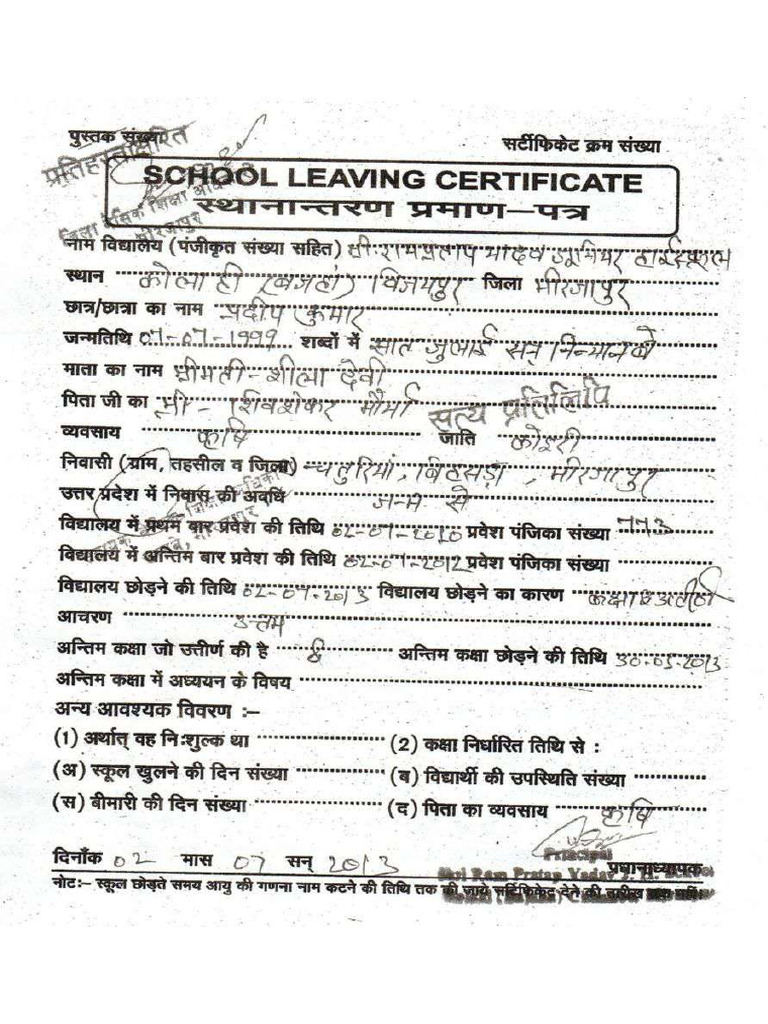 पुस्तक संख्या
सर्टीफिकेट क्रम संख्या
प्रतिहस्ताक्षरित
SCHOOL LEAVING CERTIFICATE
स्थानान्तरण प्रमाण-पत्र
जिला बेसिक शिक्षा अधिकारी
मीरजापुर
नाम विद्यालय (पंजीकृत संख्या सहित) श्री रामप्रताप यादव जूनियर हाईस्कूल
स्थान कोलाही विजयपुर जिला मीरजापुर
छात्र/छात्रा का नाम प्रदीप कुमार
जन्मतिथि 07-07-1999 शब्दों में सात जुलाई सन् निन्यानबे
माता का नाम श्रीमती - शीला देवी
पिता जी का श्री - शिवशंकर मौर्या
सत्य प्रतिलिपि
व्यवसाय कृषि जाति कोइरी
निवासी (ग्राम, तहसील व जिला) चतुरियां, बिहसड़ा, मीरजापुर
उत्तर प्रदेश में निवास की अवधि जन्म से
विद्यालय में प्रथम बार प्रवेश की तिथि 02-07-2010 प्रवेश पंजिका संख्या 773
विद्यालय में अन्तिम बार प्रवेश की तिथि 02-07-2012 प्रवेश पंजिका संख्या
विद्यालय छोड़ने की तिथि 02-07-2013 विद्यालय छोड़ने का कारण कक्षा 8 उत्तीर्ण
आचरण उत्तम
अन्तिम कक्षा जो उत्तीर्ण की है 8 अन्तिम कक्षा छोड़ने की तिथि 30-05-2013
अन्तिम कक्षा में अध्ययन के विषय
अन्य आवश्यक विवरण :-
(1) अर्थात् वह निःशुल्क था (2) कक्षा निर्धारित तिथि से :
(अ) स्कूल खुलने की दिन संख्या (ब) विद्यार्थी की उपस्थिति संख्या
(स) बीमारी की दिन संख्या (द) पिता का व्यवसाय कृषि
दिनाँक 02 मास 07 सन् 2013
Principal
प्रधानाध्यापक
Shri Ram Pratap Yadav J. H. School
नोट:- स्कूल छोड़ते समय आयु की गणना नाम कटने की तिथि तक की जाये सर्टिफिकेट देने की तारीख तक नहीं।